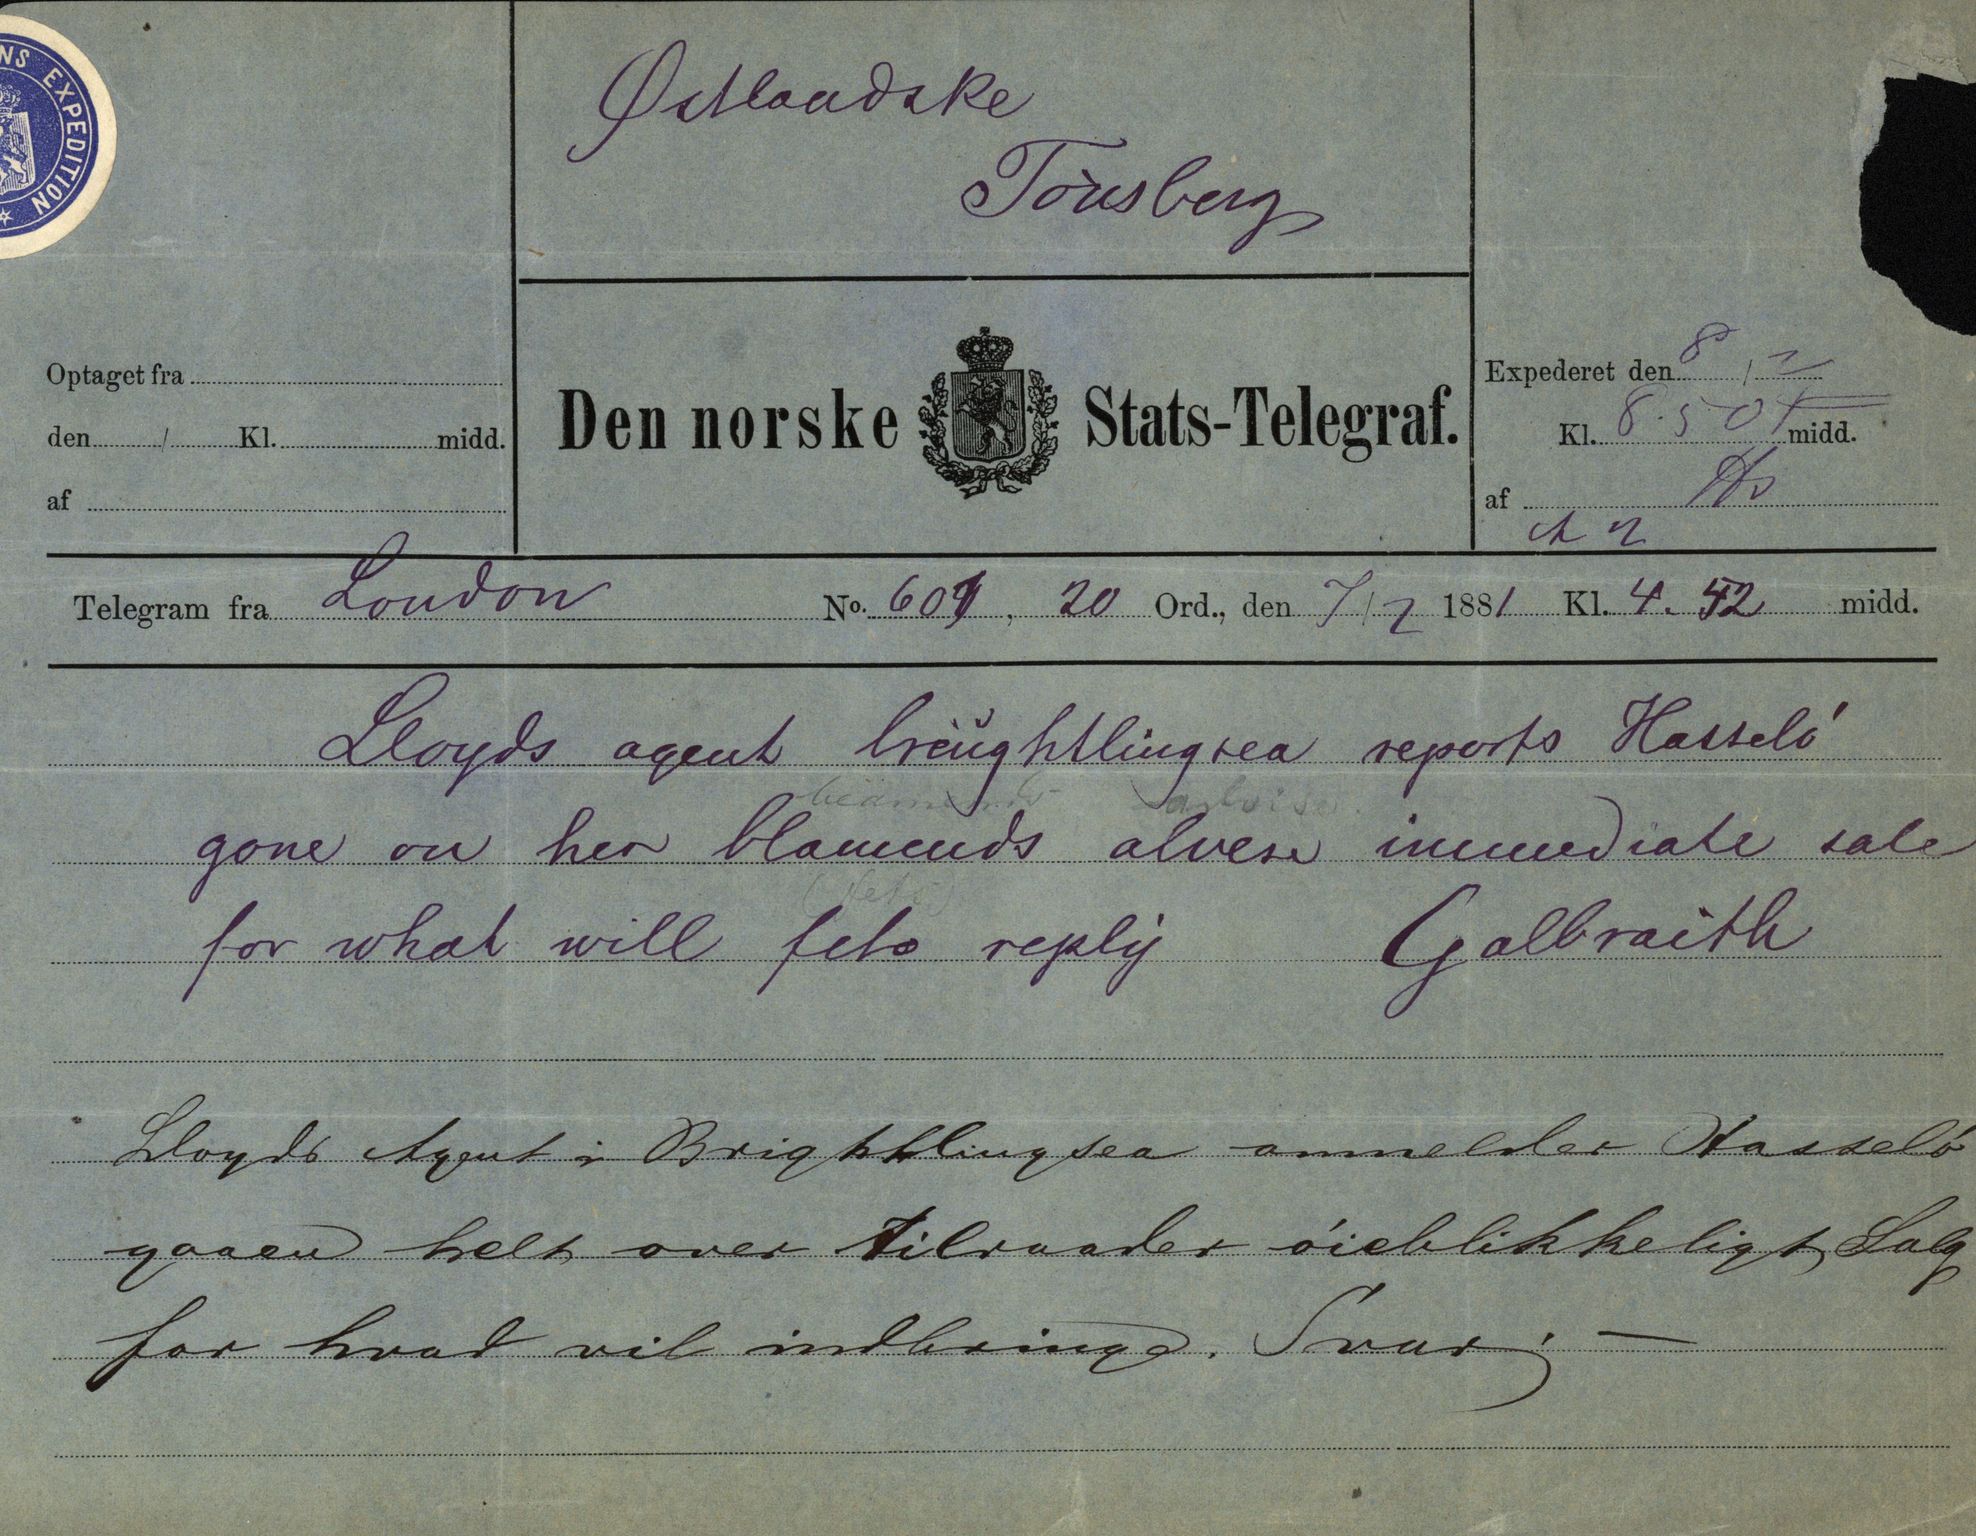 NS EXPEDITION
Østlandske
Tönsberg
Optaget fra
den / Kl. midd.
af
Den norske Stats-Telegraf.
Expederet den 8 / 2
Kl. 8.50 F midd.
af
Telegram fra London No. 601, 20 Ord., den 7/2 1881 Kl. 4.52 midd.
Lloyds agent breughtlingsea reports Hasselö
gone on her blamends alvese immediate sale
for what will fets reply Galbraith
Lloyds Agent i Brightlingsea anmelder Hasselö
gaaen helt over tilraader öieblikkeligt Salg
for hvad vil indbringe. Svar; —